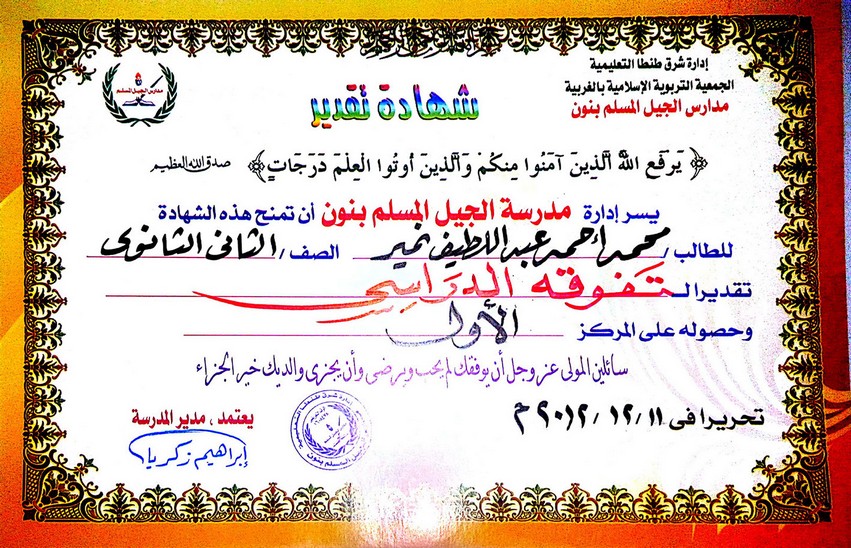 إدارة شرق طنطا التعليمية
الجمعية التربوية الإسلامية بالغربية
مدارس الجيل المسلم بنون
مدارس الجيل المسلم
شهادة تقدير
﴿يَرْفَعِ اللَّهُ الَّذِينَ آمَنُوا مِنكُمْ وَالَّذِينَ أُوتُوا الْعِلْمَ دَرَجَاتٍ﴾ صدق الله العظيم
يسر إدارة مدرسة الجيل المسلم بنون أن تمنح هذه الشهادة
للطالب / محمد أحمد عبد اللطيف نمير الصف / الثانى الثانوى
تقديرا لـ تفوقه الدراسي
وحصوله على المركز الأول
سائلين المولى عز وجل أن يوفقك لم يحب ويرضى وأن يجزى والديك خير الجزاء
تحريرا فى ١١ / ١٢ / ٢٠١٢ م
يعتمد ، مدير المدرسة
إبراهيم زكريا